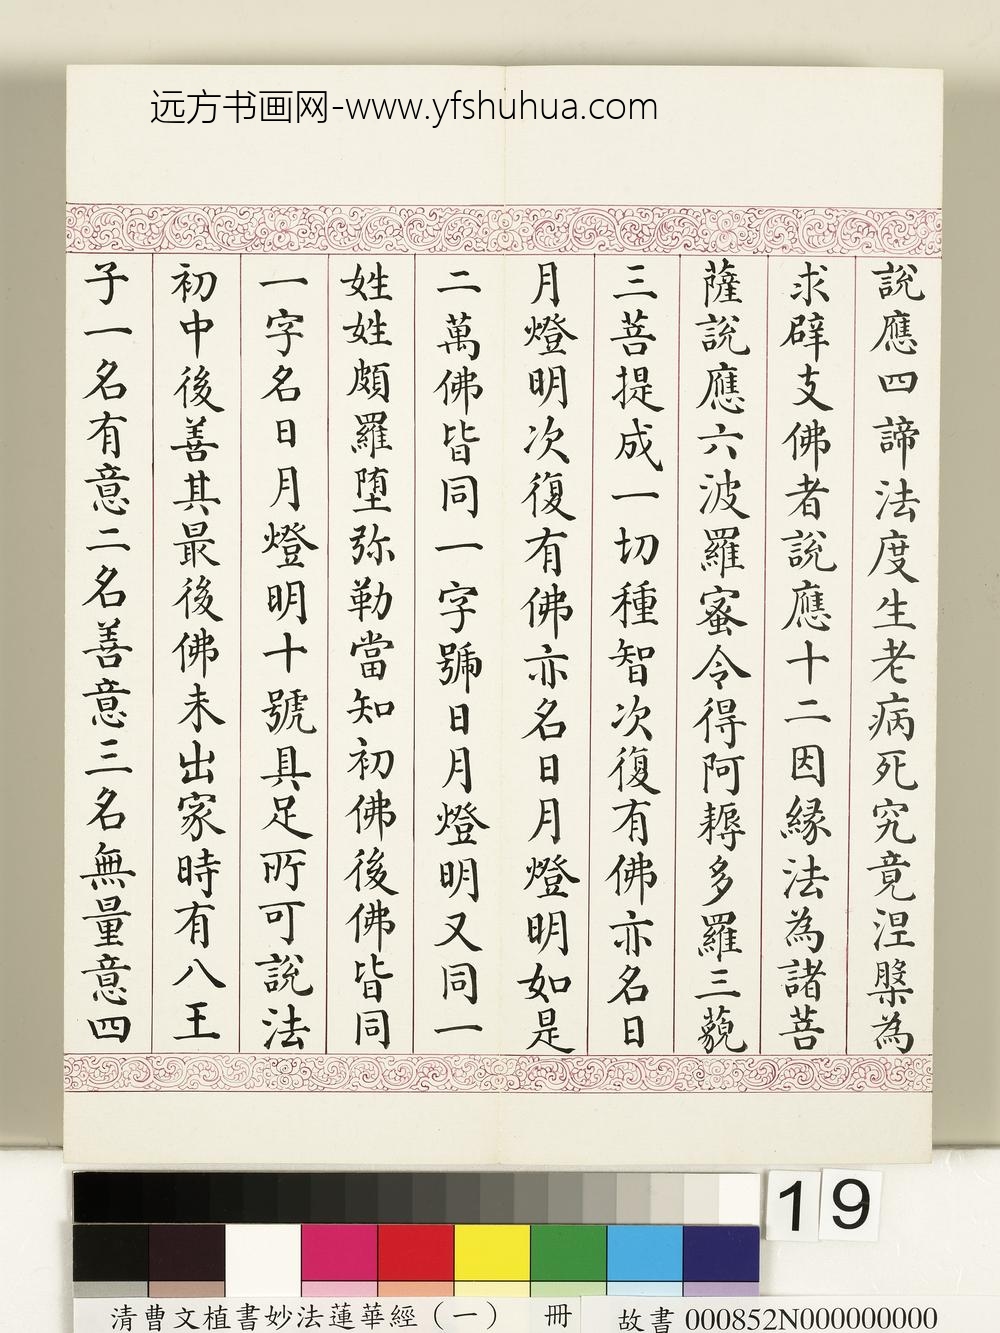 远方书画网-www.yfshuhua.com
說應四諦法度生老病死究竟涅槃為
求辟支佛者說應十二因緣法為諸菩
薩說應六波羅蜜令得阿耨多羅三藐
三菩提成一切種智次復有佛亦名日
月燈明次復有佛亦名日月燈明如是
二萬佛皆同一字號日月燈明又同一
姓姓頗羅墮弥勒當知初佛後佛皆同
一字名日月燈明十號具足所可說法
初中後善其最後佛未出家時有八王
子一名有意二名善意三名無量意四
19
清曹文植書妙法蓮華經（一） 冊 故書 000852N000000000